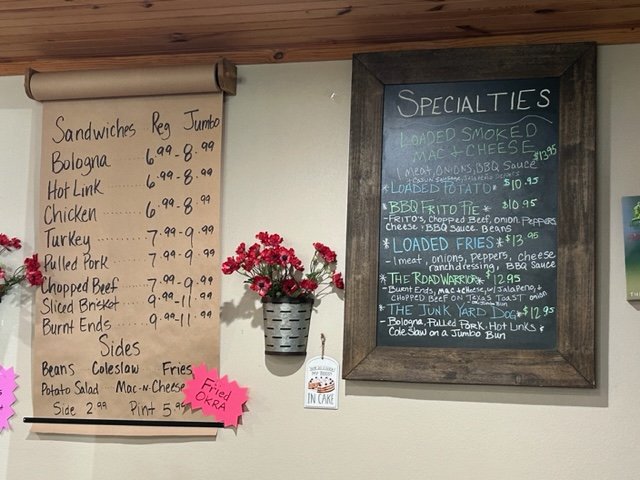 Sandwiches Reg Jumbo
Bologna 6.99 - 8.99
Hot Link 6.99 - 8.99
Chicken 6.99 - 8.99
Turkey 7.99 - 9.99
Pulled Pork 7.99 - 9.99
Chopped Beef 7.99 - 9.99
Sliced Brisket 9.99 - 11.99
Burnt Ends 9.99 - 11.99
Sides
Beans Coleslaw Fries
Potato Salad Mac-N-Cheese
Side 2.99 Pint 5.95
Fried
OKRA
IN CAKE
SPECIALTIES
LOADED SMOKED
MAC + CHEESE $13.95
1 meat, ONIONS, BBQ Sauce
*LOADED POTATO* $10.95
*BBQ FRITO PIE* $10.95
- FRITOS, Chopped Beef, onion, Peppers
Cheese, BBQ Sauce, Beans
*LOADED FRIES* $13.95
- 1 meat, onions, peppers, cheese
ranch dressing, BBQ Sauce
*THE ROAD WARRIOR* $12.95
- Burnt Ends, mac & cheese, w/ Jalapeno, &
CHOPPED BEEF ON TEXAS TOAST onion
*THE JUNK YARD DOG* $12.95
- Bologna, Pulled Pork, Hot Links &
Cole Slaw on a Jumbo Bun